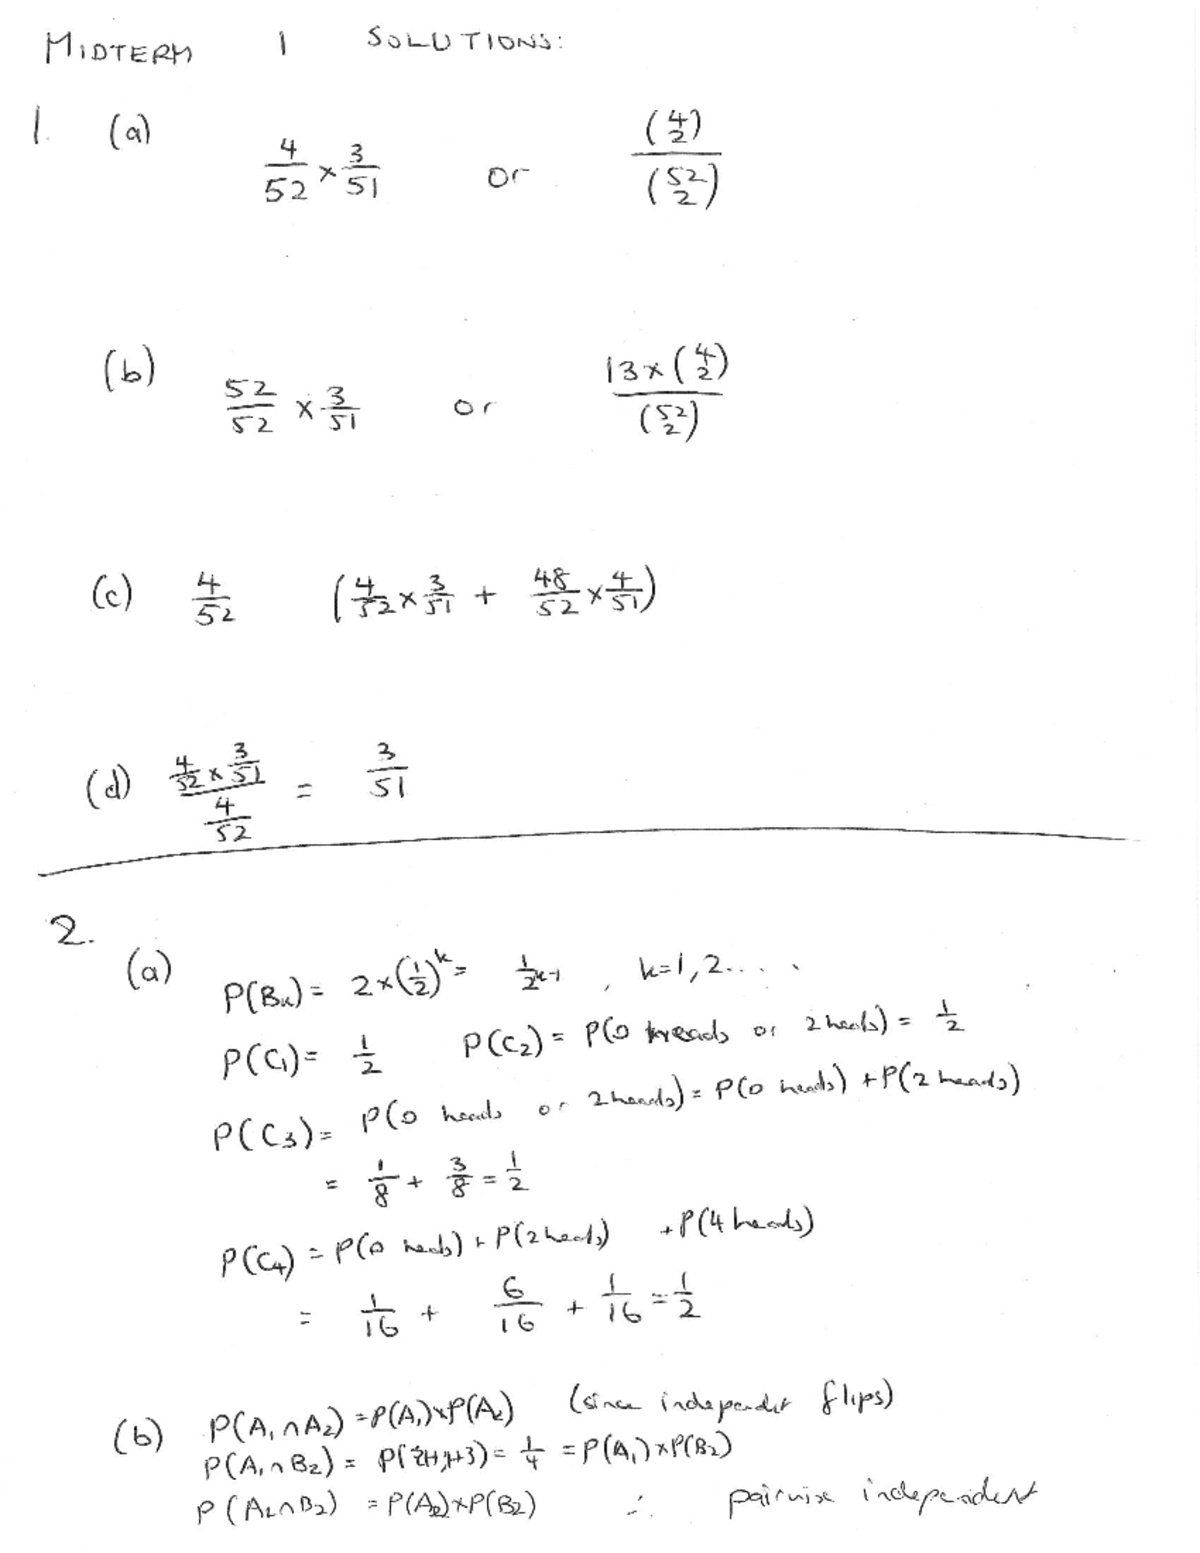 MIDTERM 1 SOLUTIONS:
1. (a) 4/52 × 3/51 or (4 2)/(52 2)
(b) 52/52 × 3/51 or 13×(4 2)/(52 2)
(c) 4/52 (4/52 × 3/51 + 48/52 × 4/51)
(d) (4/52 × 3/51)/(4/52) = 3/51
2.
(a) P(Bk) = 2×(1/2)^k = 1/2^(k-1) , k=1,2....
P(C1) = 1/2 P(C2) = P(0 heads or 2 heads) = 1/2
P(C3) = P(0 heads or 2 heads) = P(0 heads) + P(2 heads)
= 1/8 + 3/8 = 1/2
P(C4) = P(0 heads) + P(2 heads) + P(4 heads)
= 1/16 + 6/16 + 1/16 = 1/2
(b) P(A1 ∩ A2) = P(A1)×P(A2) (since independent flips)
P(A1 ∩ B2) = P({H,H}) = 1/4 = P(A1)×P(B2)
P(A2 ∩ B2) = P(A2)×P(B2) ∴ pairwise independent